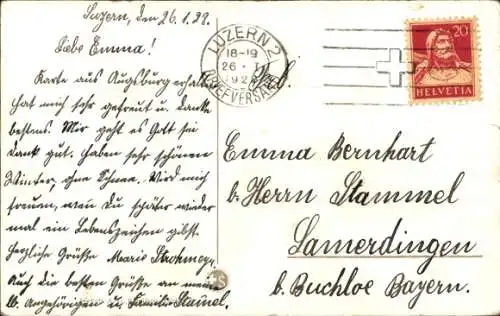 Luzern, den 26.1.22.
Liebe Emma!
Karte aus Augsburg erhalt.
hat mich sehr gefreut u. danke
bestens. Mir geht es Gott sei
Dank gut. haben sehr schönen
Winter, ohne Schnee. Wird mich
freuen, wenn Du später wieder
mal ein Lebenszeichen gibst.
Herzliche Grüße Marie
Auch die besten Grüße an meine
lb. Angehörigen u. Familie Stammel.
LUZERN 2
18-19
26. I
192
BRIEFVERSAND
20
HELVETIA
Emma Bernhart
b. Herrn Stammel
Lamerdingen
b. Buchloe Bayern.